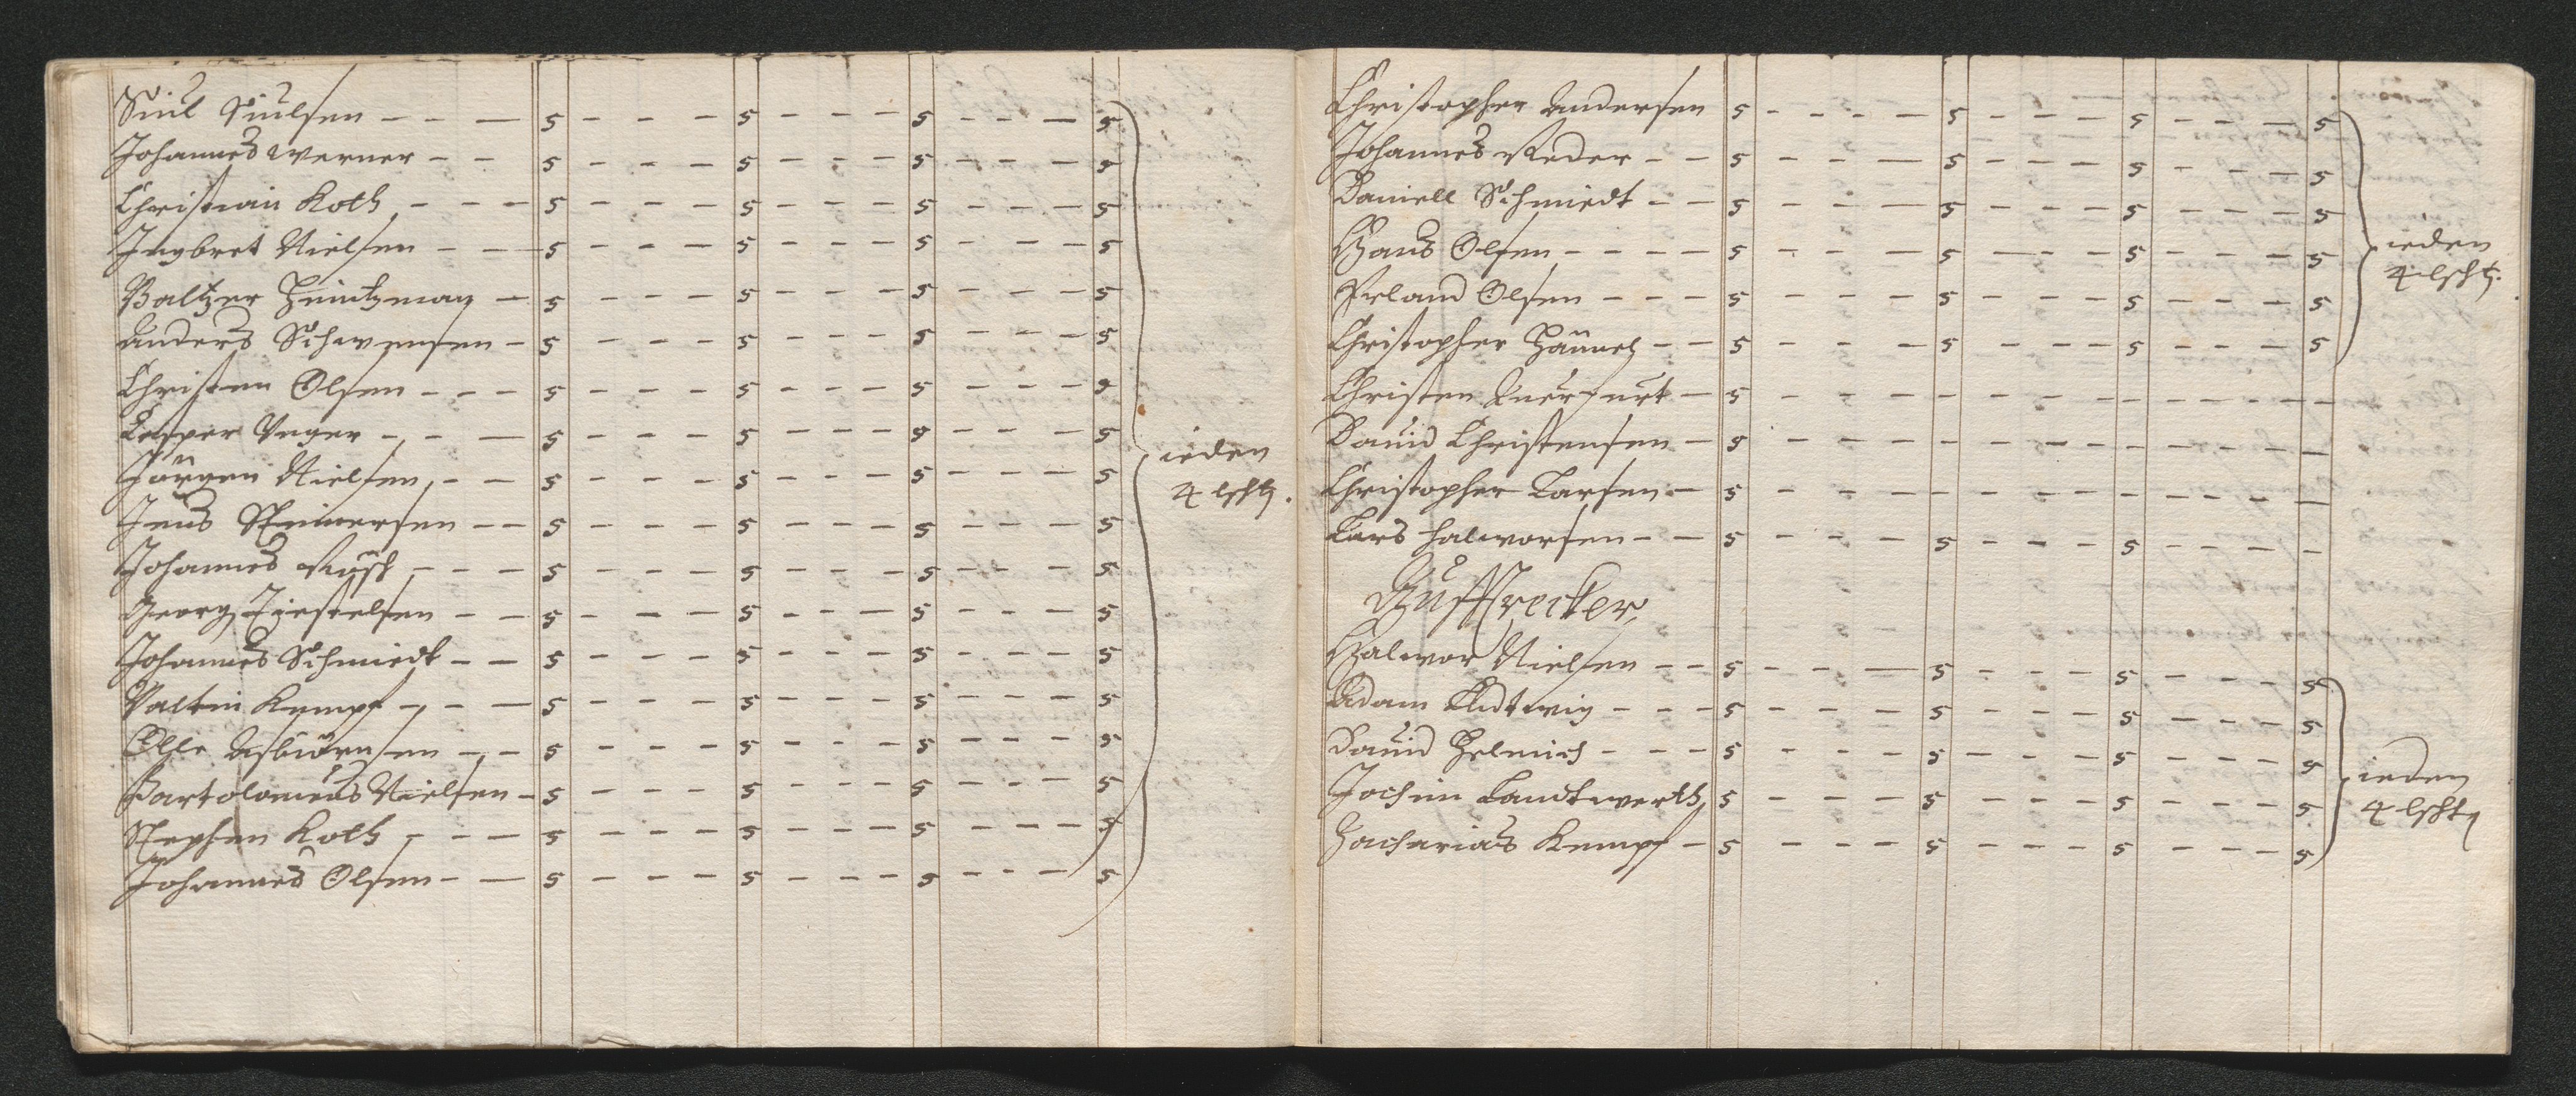 Siul Siulsen - - - 5 - - - 5 - - - 5 - - - 5
Johannes Werner - - 5 - - - 5 - - - 5 - - - 5
Christian Koth - - - 5 - - - 5 - - - 5 - - - 5
Ingbret Nielsen - - - 5 - - - 5 - - - 5 - - - 5
Baltzer Heintzman - 5 - - - 5 - - - 5 - - - 5
Anders Schwensen - 5 - - - 5 - - - 5 - - - 5
Christen Olsen - - - 5 - - - 5 - - - 5 - - - 5
Casper Unger - - - 5 - - - 5 - - - 5 - - - 5
ieden
Jörgen Nielsen - - 5 - - - 5 - - - 5 - - - 5
4 lschtz.
Jens Steinersen - - 5 - - - 5 - - - 5 - - - 5
Johannes Rüsch - - - 5 - - - 5 - - - 5 - - - 5
Georg Kiestelsen - - 5 - - - 5 - - - 5 - - - 5
Johannes Schmiedt - - 5 - - - 5 - - - 5 - - - 5
Valtin Kempf - - - 5 - - - 5 - - - 5 - - - 5
Olle Asbiörnsen - - 5 - - - 5 - - - 5 - - - 5
Bartolomeus Nielsen - 5 - - - 5 - - - 5 - - - 5
Stephen Koth - - - 5 - - - 5 - - - 5 - - - 5
Johannes Olsen - - 5 - - - 5 - - - 5 - - - 5
Christopher Andersen 5 - - - - 5 - - - 5 - - - 5
Johannes Reder - - 5 - - - 5 - - - 5 - - - 5
Daniell Schmiedt - - 5 - - - 5 - - - 5 - - - 5
Hans Olsen - - - - 5 - - - 5 - - - 5 - - - 5
ieden
4 lschtz.
Erland Olsen - - - 5 - - - 5 - - - 5 - - - 5
Christopher - - 5 - - - 5 - - - 5 - - - 5
Christen Querfurt - 5 - - - - - - - - - - - -
Dauid Christensen - 5 - - - - - - - - - - - -
Christopher Larsen - 5 - - - - - - - - - - - -
Lars Halworsen - - 5 - - - 5 - - - 5 - - - -
Halwor Nielsen - - 5 - - - 5 - - - 5 - - - 5
Adam Ludtwig - - - 5 - - - 5 - - - 5 - - - 5
Dauid Helmich - - - 5 - - - 5 - - - 5 - - - 5
ieden
Jochim Landtwerth 5 - - - 5 - - - 5 - - - 5
4 lschtz
Zacharias Kempf - 5 - - - 5 - - - 5 - - - 5